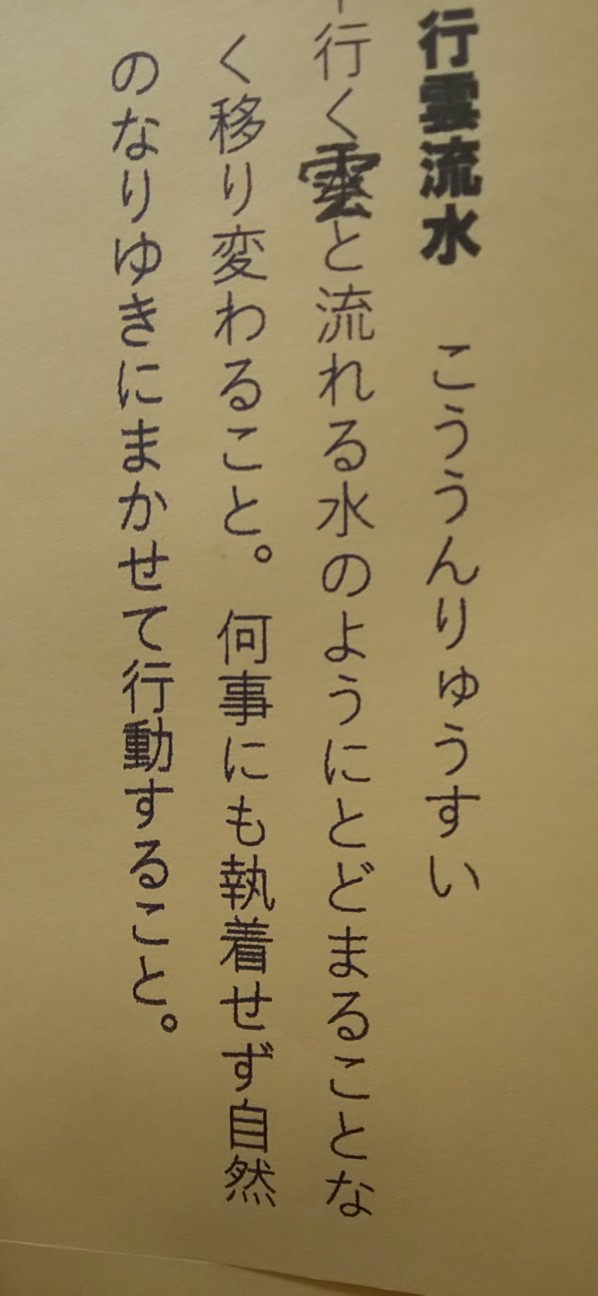 行雲流水 こううんりゅうすい
行く雲と流れる水のようにとどまることな
く移り変わること。何事にも執着せず自然
のなりゆきにまかせて行動すること。